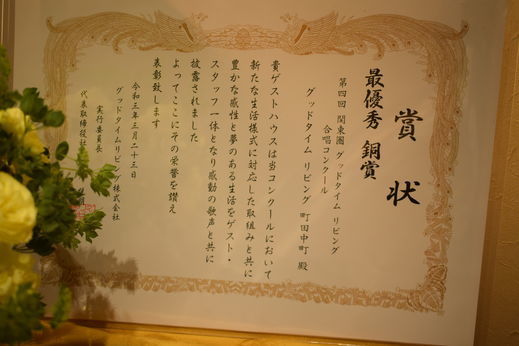 賞状
最優秀 銅賞
第四回 関東圏 グッドタイム リビング
合唱コンクール
グッドタイム リビング 町田中町 殿
貴ゲストハウスは当コンクールにおいて
新たな生活様式に対応した取組みと共に
豊かな感性と夢のある生活をゲスト・
スタッフ一体となり感動の歌声と共に
披露されました
よってここにその栄誉を讃え
表彰致します
令和三年三月二十三日
グッドタイムリビング株式会社
実行委員長
代表取締役社